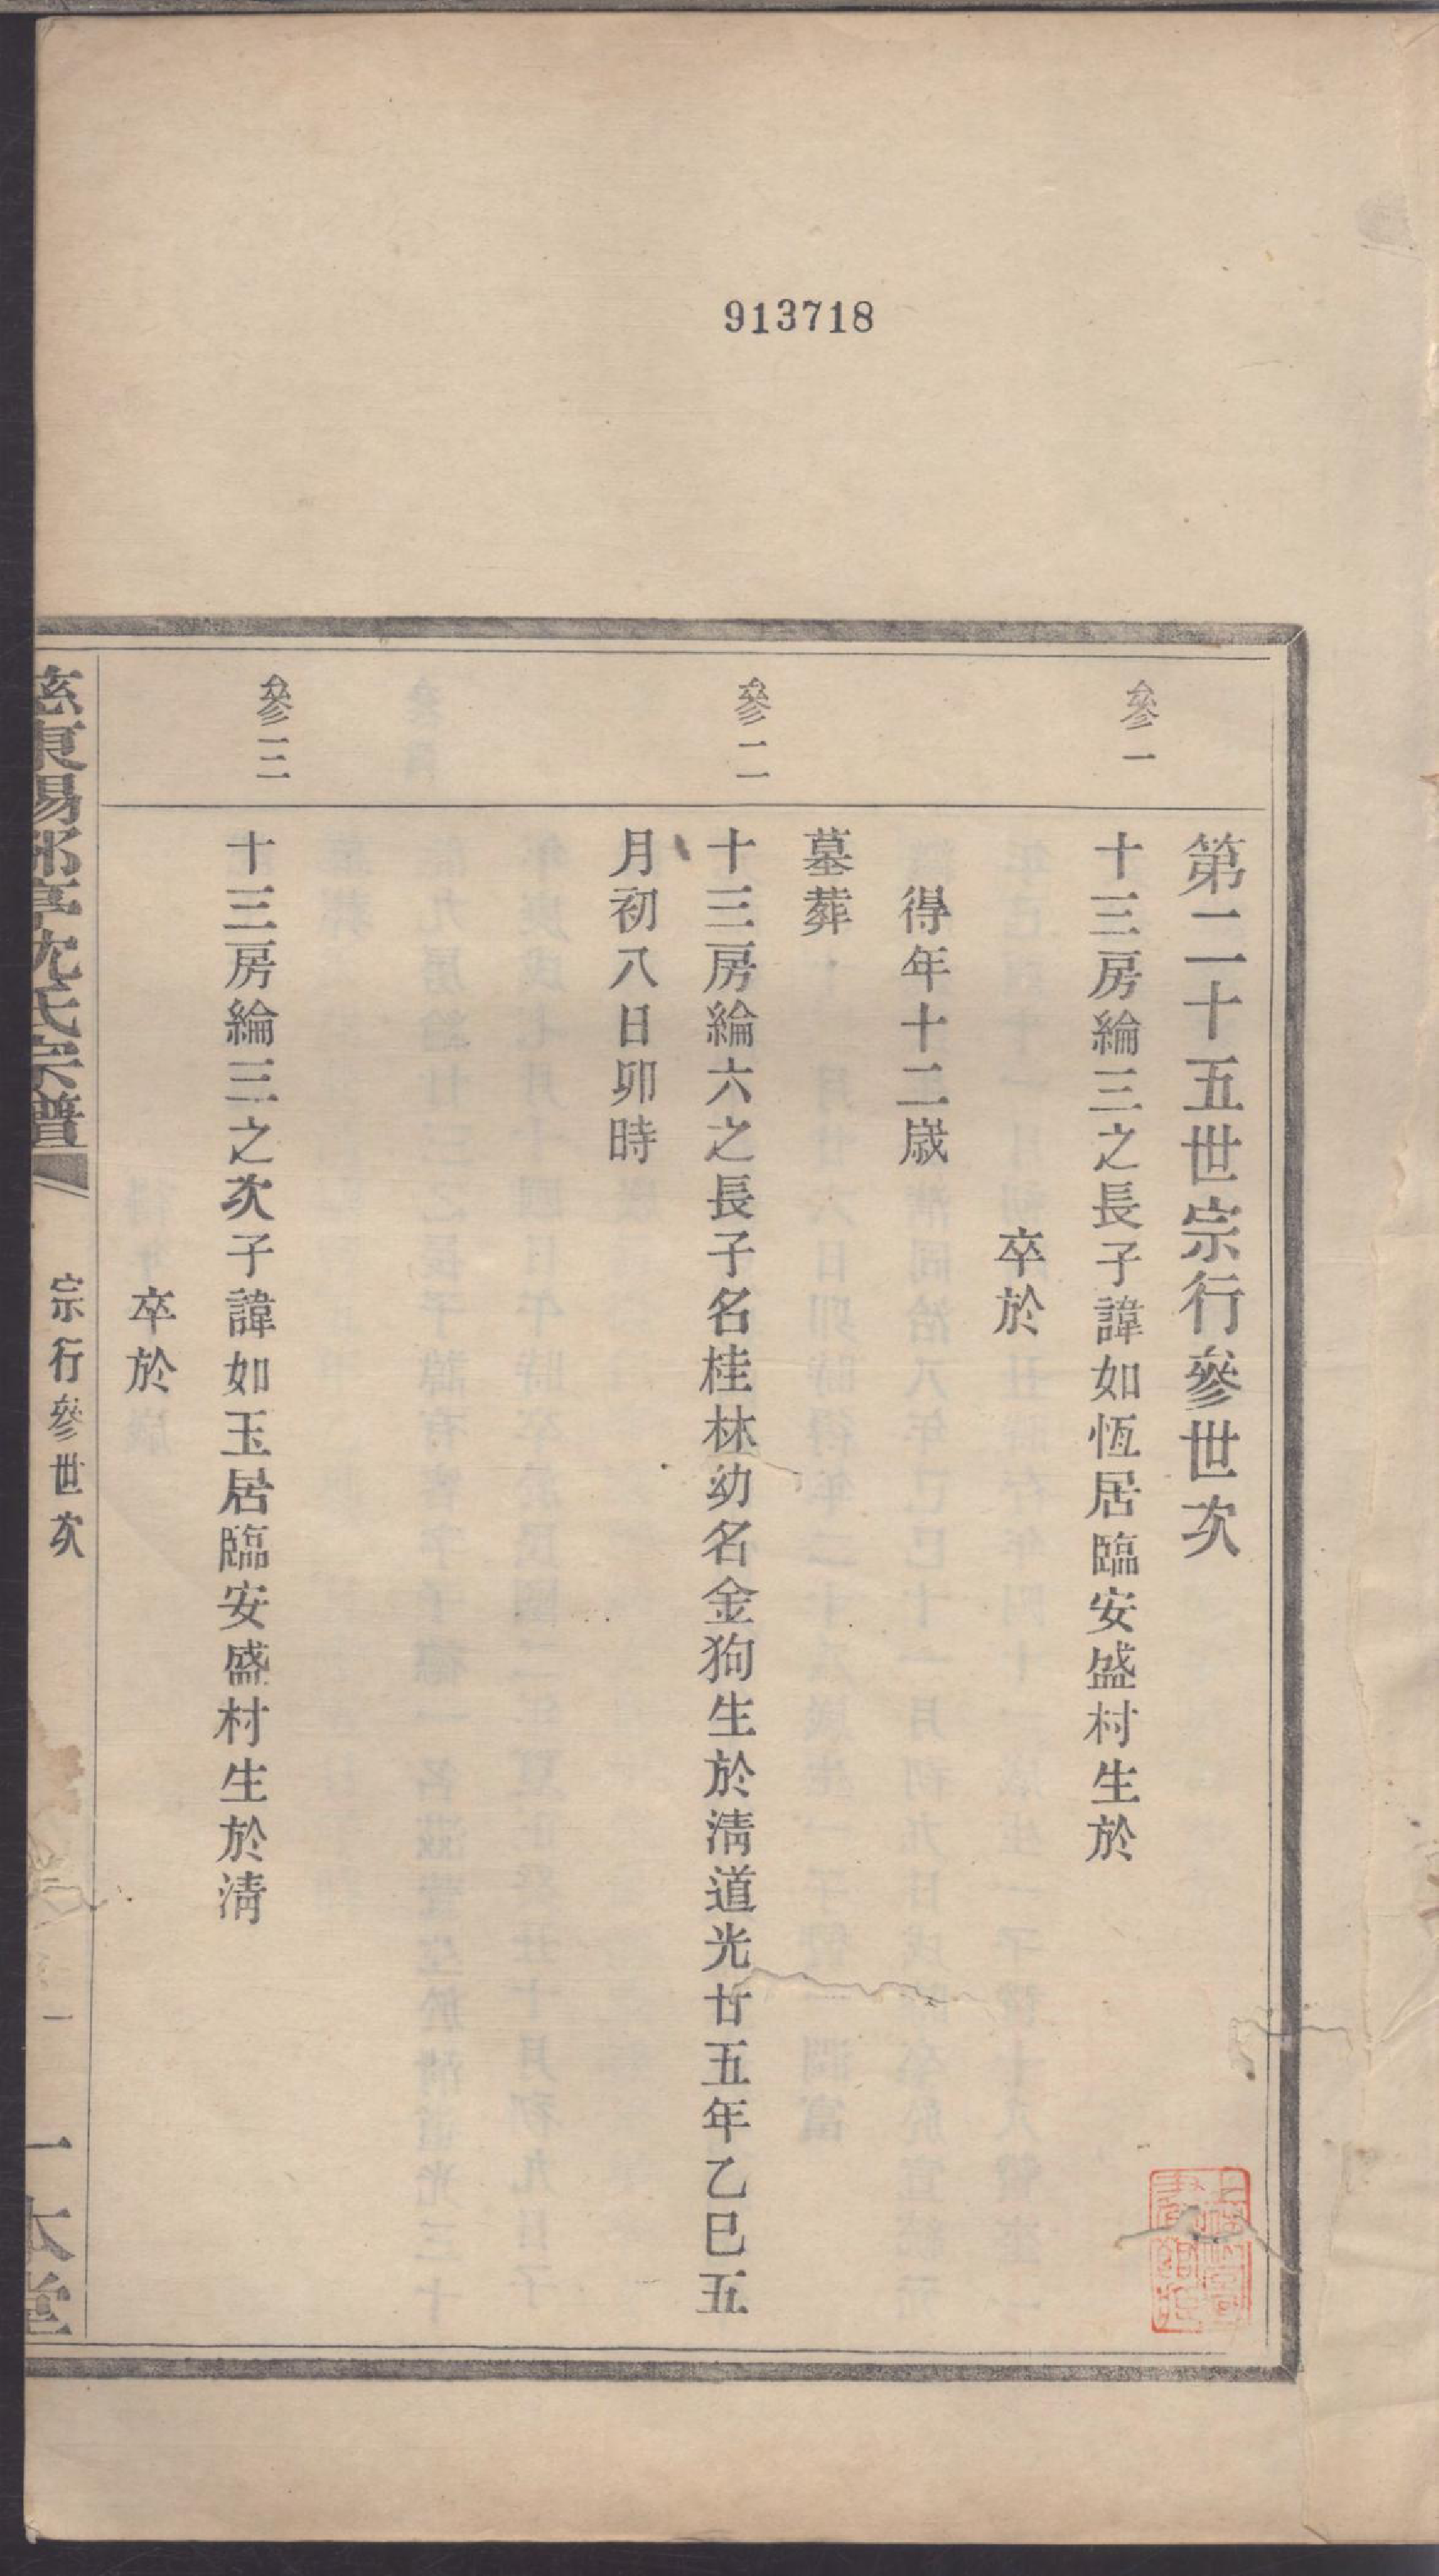 913718
第二十五世宗行參世次
參一
十三房綸三之長子諱如恆居臨安盛村生於
卒於
得年十二歲
墓葬
參二
十三房綸六之長子名桂林幼名金狗生於清道光廿五年乙巳五
月初八日卯時
參三
十三房綸三之次子諱如玉居臨安盛村生於清
卒於
慈東楊邨亭沈氏宗譜
宗行參世次
一
一本堂